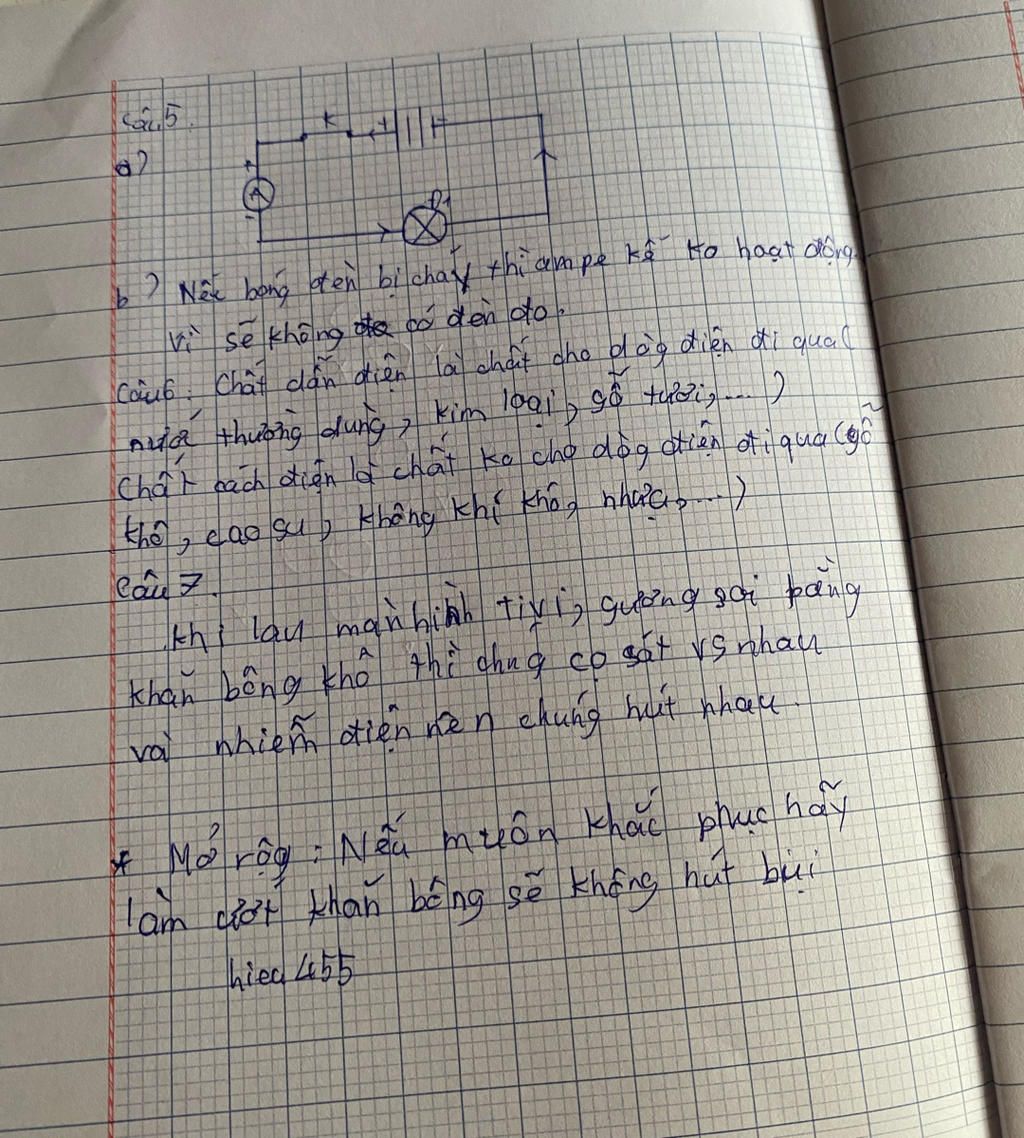 Câu 5.
a)
K
+
+
A
-
Đ1
b) Nếu bóng đèn bị cháy thì ampe kế ko hoạt động.
Vì sẽ không có đèn đo.
Câu 6: Chất dẫn điện là chất cho dòg điện đi qua (
nước thường dùng, kim loại, gỗ tươi, ...)
Chất cách điện là chất ko cho dòg điện đi qua (gỗ
khô, cao su, không khí khô, nhựa, ...)
Câu 7.
Khi lau màn hình tivi, gương soi bằng
khăn bông khô thì chúg cọ sát vs nhau
và nhiễm điện nên chúng hút nhau.
* Mở rộg: Nếu muốn khắc phục hãy
làm ướt khăn bông sẽ không hút bụi
hieu455